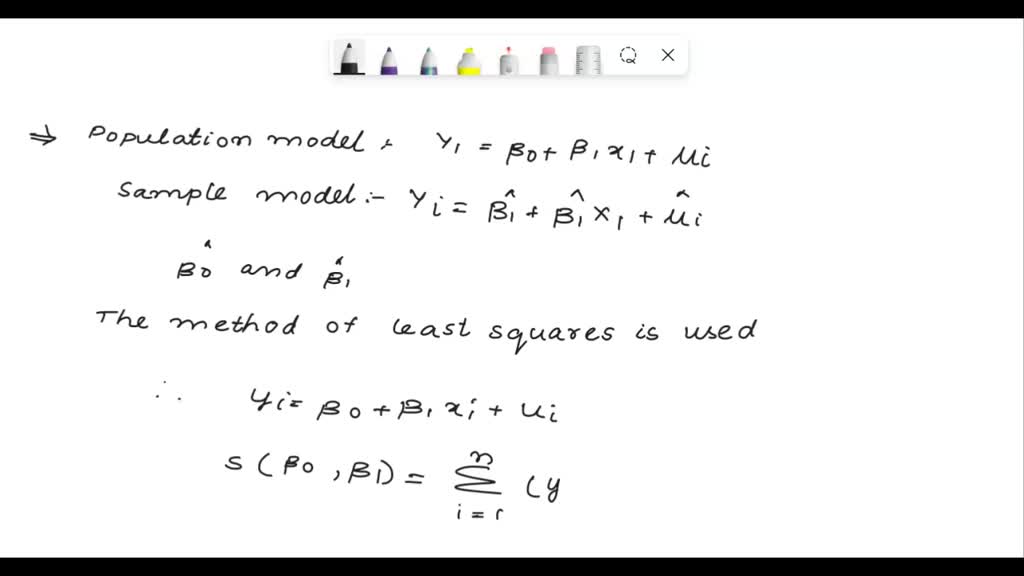 ⇒ Population model :- Y₁ = β₀ + β₁x₁ + μi
Sample model :- Yi = β̂₁ + β̂₁X₁ + μ̂i
β̂₀ and β̂₁
The method of least squares is used
∴ yi = β₀ + β₁xi + ui
S(β₀, β₁) = Σⁿᵢ₌₁ (y